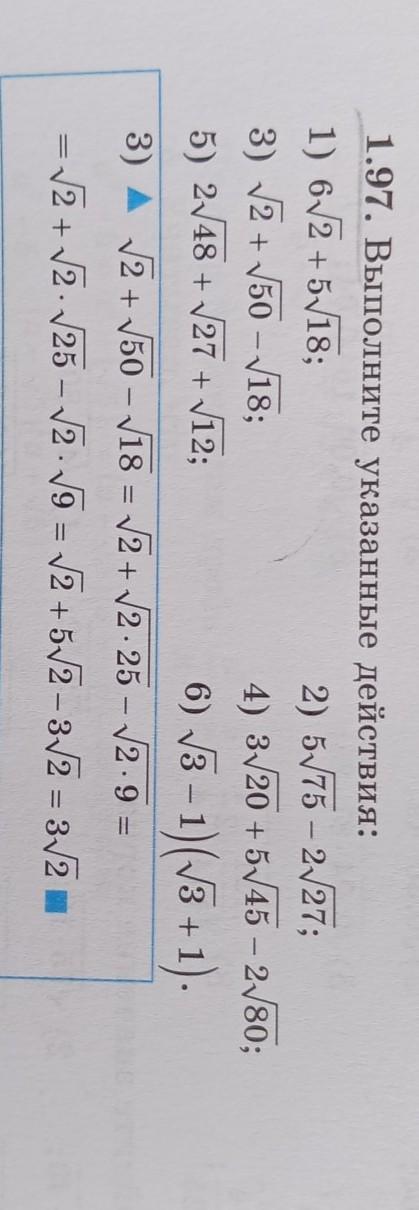 1.97. Выполните указанные действия:
1) 6√2 + 5√18; 2) 5√75 − 2√27;
3) √2 + √50 − √18; 4) 3√20 + 5√45 − 2√80;
5) 2√48 + √27 + √12; 6) √3 − 1)(√3 + 1).
3) ▲ √2 + √50 − √18 = √2 + √2·25 − √2·9 =
= √2 + √2·√25 − √2·√9 = √2 + 5√2 − 3√2 = 3√2 ■